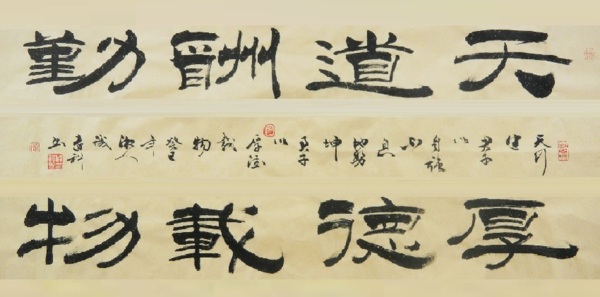 天道酬勤
天行健君子以自强不息地勢坤君子以厚德載物癸巳年
厚德載物